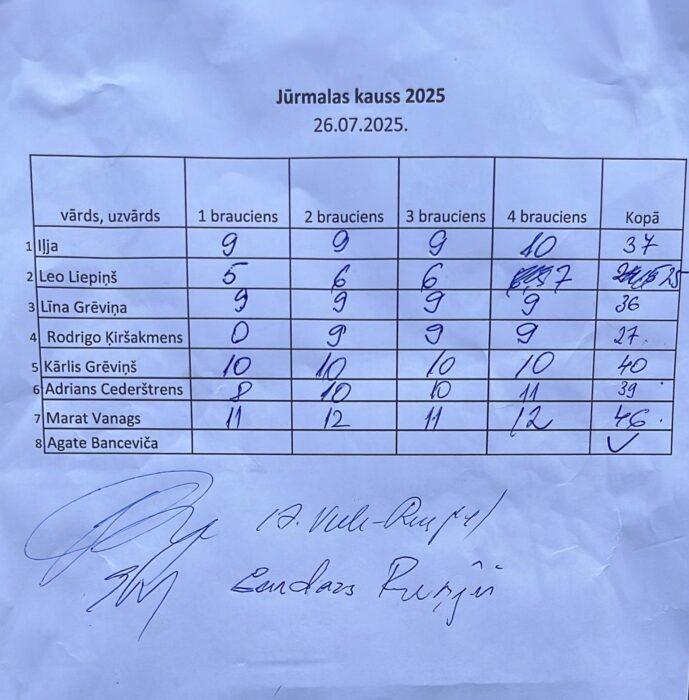 Jūrmalas kauss 2025
26.07.2025.
vārds, uzvārds 1 brauciens 2 brauciens 3 brauciens 4 brauciens Kopā
1 Iļja 9 9 9 10 37
2 Leo Liepiņš 5 6 6 7 25
3 Līna Grēviņa 9 9 9 9 36
4 Rodrigo Ķiršakmens 0 9 9 9 27.
5 Kārlis Grēviņš 10 10 10 10 40
6 Adrians Cederštrens 8 10 10 11 39
7 Marat Vanags 11 12 11 12 46.
8 Agate Banceviča ✓